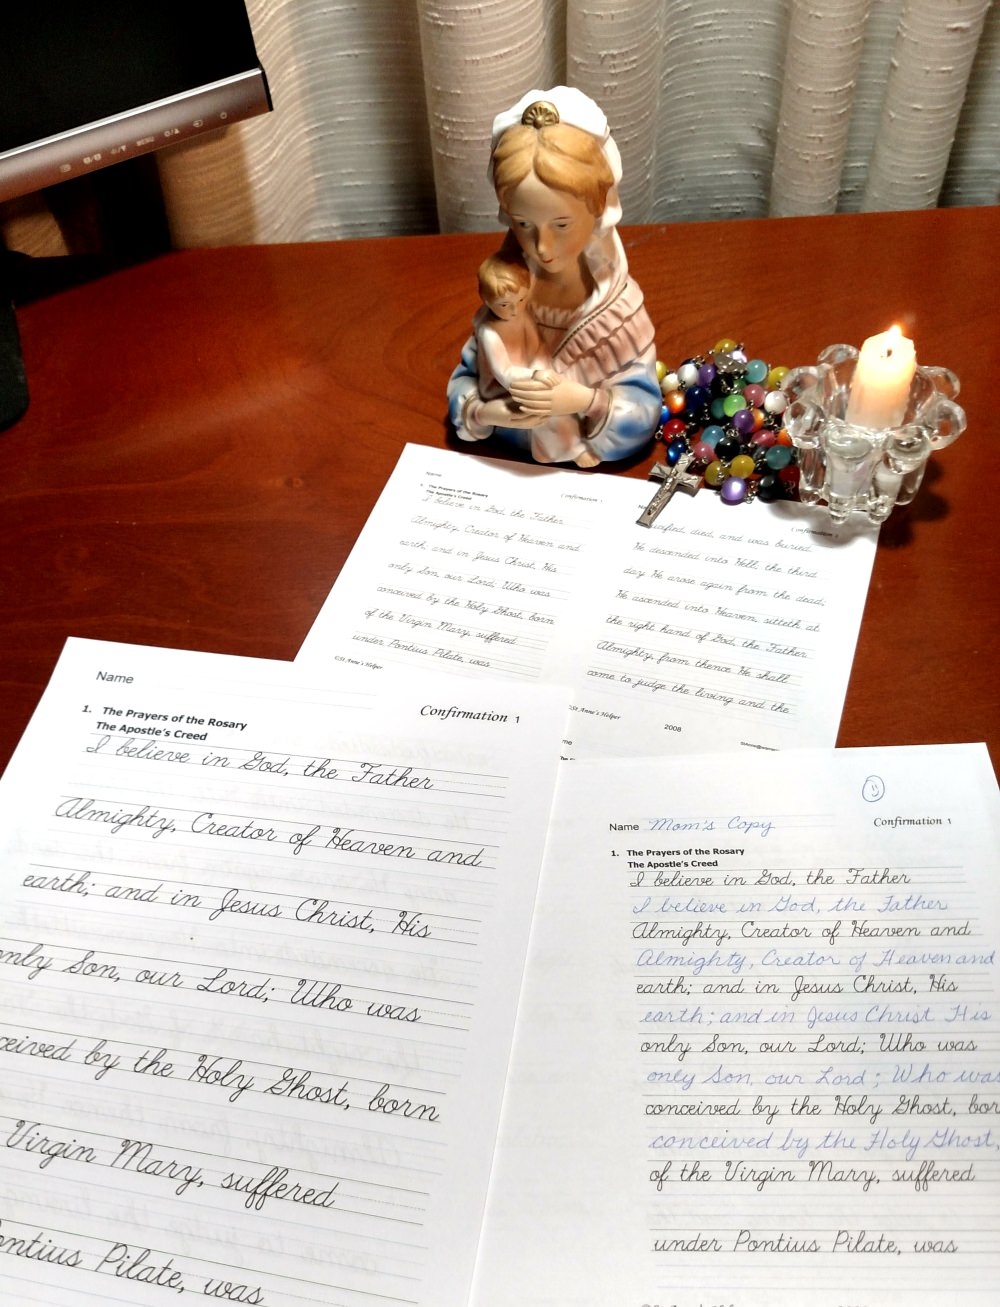 Name
Confirmation 1
1. The Prayers of the Rosary
The Apostle's Creed
I believe in God, the Father
Almighty, Creator of Heaven and
earth; and in Jesus Christ, His
only Son, our Lord; Who was
conceived by the Holy Ghost, born
of the Virgin Mary, suffered
under Pontius Pilate, was
©St. Anne's Helper
Confirmation
crucified, died, and was buried.
He descended into Hell, the third
day He arose again from the dead;
He ascended into Heaven, sitteth at
the right hand of God, the Father
Almighty, from thence He shall
come to judge the living and the
©St. Anne's Helper
2008
Name
Confirmation 1
1. The Prayers of the Rosary
The Apostle's Creed
I believe in God, the Father
Almighty, Creator of Heaven and
earth; and in Jesus Christ, His
only Son, our Lord; Who was
ceived by the Holy Ghost, born
Virgin Mary, suffered
ontius Pilate, was
Name Mom's Copy
Confirmation 1
1. The Prayers of the Rosary
The Apostle's Creed
I believe in God, the Father
I believe in God, the Father
Almighty, Creator of Heaven and
Almighty, Creator of Heaven and
earth; and in Jesus Christ, His
earth; and in Jesus Christ His
only Son, our Lord; Who was
only Son, our Lord; Who was
conceived by the Holy Ghost, bor
conceived by the Holy Ghost,
of the Virgin Mary, suffered
under Pontius Pilate, was